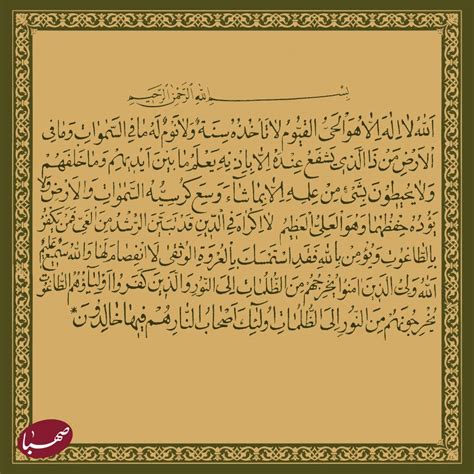 بِسْمِ اللهِ الرَّحْمٰنِ الرَّحِيمِ
اَللهُ لا اِلٰهَ اِلاّ هُوَ الْحَىُّ الْقَيُّومُ لا تَأخُذُهُ سِنَةٌ وَ لا نَومٌ لَهُ ما فِى السَّمٰواتِ وَ ما فِى
الْاَرْضِ مَنْ ذَا الَّذى يَشْفَعُ عِنْدَهُ اِلاّ بِاِذْنِهِ يَعْلَمُ ما بَيْنَ اَيْديهِمْ وَ ما خَلْفَهُمْ
وَ لا يُحيطُونَ بِشَىْءٍ مِنْ عِلْمِهِ اِلاّ بِما شاءَ وَسِعَ كُرْسِيُّهُ السَّمٰواتِ وَ الْاَرْضَ وَ لا
يَؤُدُهُ حِفْظُهُما وَ هُوَ الْعَلِىُّ الْعَظيمُ لا اِكْراهَ فِى الدّينِ قَدْ تَبَيَّنَ الرُّشْدُ مِنَ الْغَىِّ فَمَنْ يَكْفُرْ
بِالطّاغُوتِ وَ يُؤْمِنْ بِاللهِ فَقَدِ اسْتَمْسَكَ بِالْعُرْوَةِ الْوُثْقىٰ لاَ انْفِصامَ لَها وَ اللهُ سَميعٌ عَليمٌ
اَللهُ وَلِىُّ الَّذينَ امَنُوا يُخْرِجُهُمْ مِنَ الظُّلُماتِ اِلَى النُّورِ وَ الَّذينَ كَفَرُوا اَوْلِياؤُهُمُ الطّاغُوتُ
يُخْرِجُونَهُمْ مِنَ النُّورِ اِلَى الظُّلُماتِ اُولٰئِكَ اَصْحابُ النّارِ هُمْ فيها خالِدُونَ
صهبا